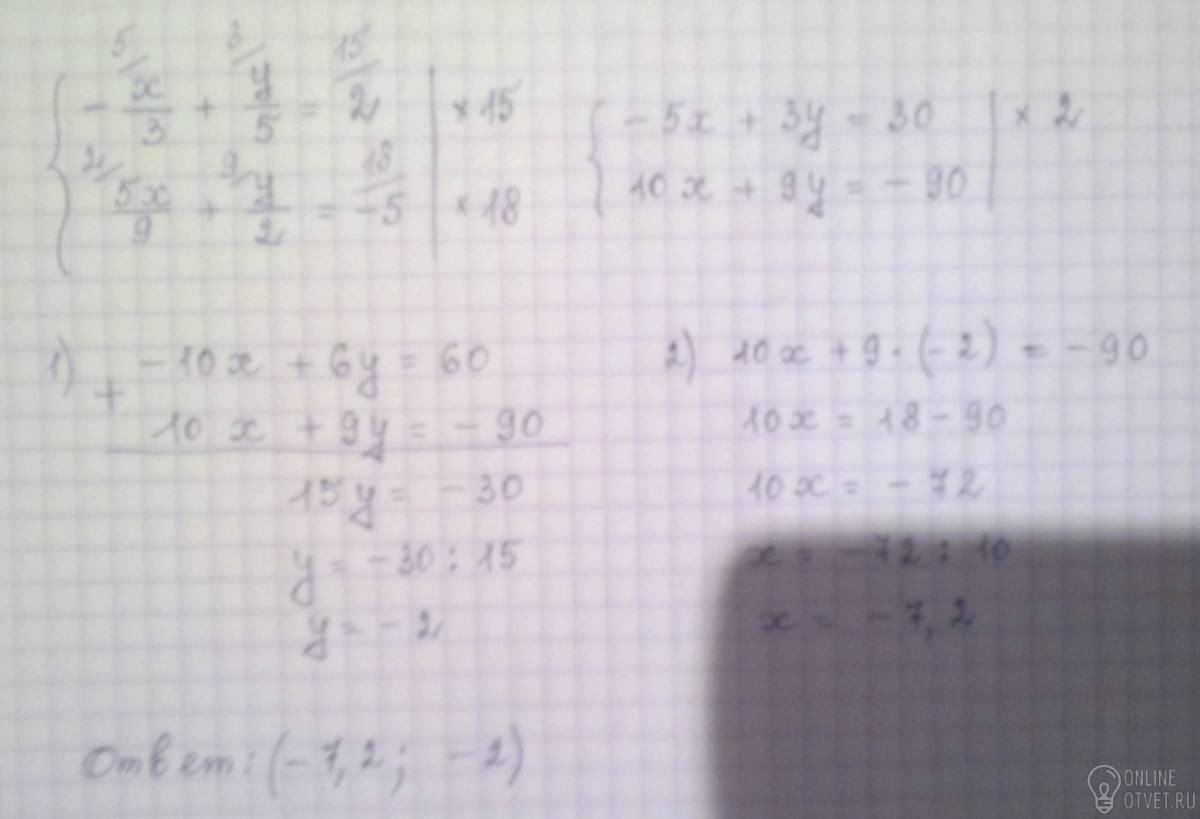 { 5/ -x/3 + 3/ y/5 = 15/ 2 | × 15
2/ 5x/9 + 9/ y/2 = 18/ -5 | × 18
{ - 5x + 3y = 30 | × 2
10x + 9y = - 90
1) + -10x + 6y = 60
10x + 9y = - 90
15y = - 30
y = -30 : 15
y = - 2
2) 10x + 9 · (-2) = -90
10x = 18 - 90
10x = - 72
x = -72 : 10
x = -7,2
Ответ: (-7,2; -2)
ONLINE
OTVET.RU